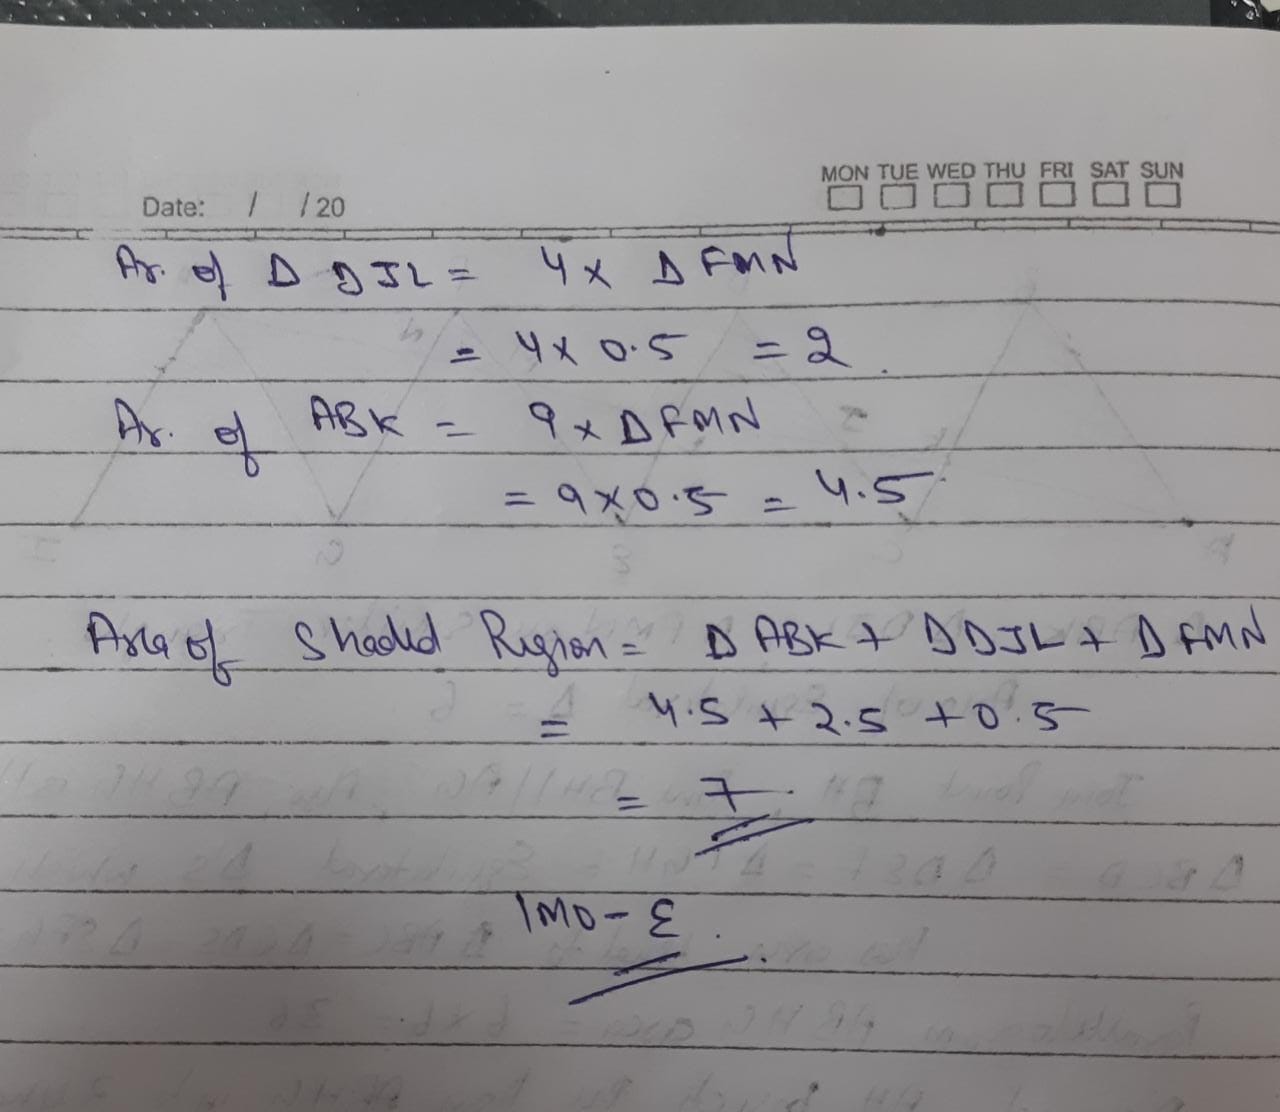 MON TUE WED THU FRI SAT SUN
Date: / /20
Ar. of Δ DJL = 4 x Δ FMN
= 4 x 0.5 = 2.
Ar. of ABK = 9 x Δ FMN
= 9 x 0.5 = 4.5
Area of Shaded Region = Δ ABK + Δ DJL + Δ FMN
= 4.5 + 2.5 + 0.5
= 7.
IMO - E.